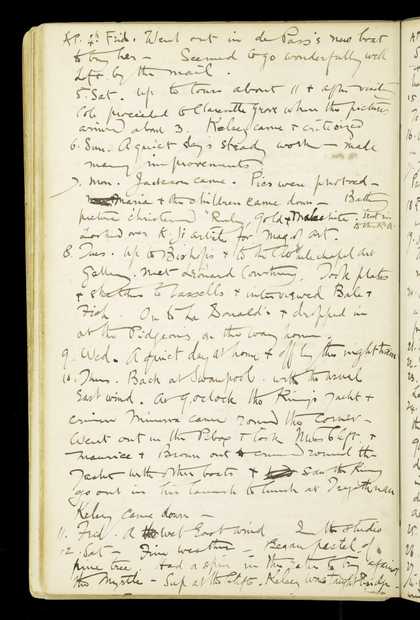 Ap. 4th Frid. Went out in de Pass's new boat
to try her – Seemed to go wonderfully well
Left by the mail.
5. Sat. Up to town about 11 & after visiting
Cols. proceeded to Clareville Grove where the pictures
arrived about 3 Kelsey came & criticised
6. Sun. A quiet day & steady work – made
many improvements
7. Mon. Jackson came. Pics were photoed –
Maria & the children came down – Bathing
picture christened "Ruby, Gold & Malachite". Sent in
to the R.A.
Looked over K. J's article for Mag of Art.
8. Tues. Up to Bishops & to the Whitechapel Art
Gallery. Met Leonard Courtney. Took plates
& sketches to Cassells & interviewed Bale &
Fish. On to La Donald's & dropped in
at the Pidgeons, on the way home.
9. Wed. A quiet day at home & off by the night train
10. Thurs. Back at Swanpool – with the usual
East wind. At 9 o'clock the King's Yacht &
cruiser Minerva came round the corner –
Went out in the P.box & took Mrs &
Maurice & Brown out & cruised round the
Yacht with other boats & saw the King
go out in his launch to lunch at Tregothnan
Kelsey came down –
11. Frid. A wet East wind In the studio
12. Sat – Fine weather – Began pastel of
pine tree. Had a spin in the
the Myrtle – Sup at the Kelsey